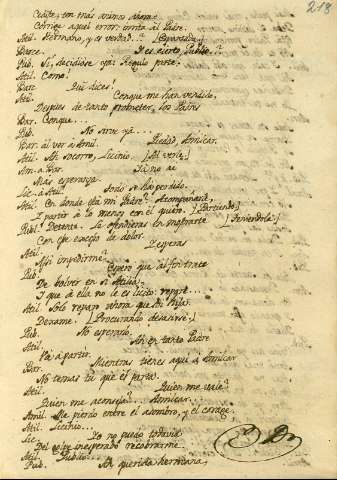 218
Cedite, con más animo ahora
Corrige aquel error: imita al Padre.
Atil. Hermano, y es verdad..? [Esperan]
Barc. Y es cierto, Publio?
Pub. Si, decidióse ya: Regulo parte.
Atil. Como!
Barc Qué dices!
Atil. Conque me han vendido,
Despues de tanto prometer, los Padres
Bar. Conque...
Pub. No sirve ya...
Bar. al ver a Amil. Piedad, Amilcar.
Atil. Ah socorro, Licinio. [Al verle.]
Am. a Bar. Ya no ai
Más esperanza.
Lic. a Atil. Todo se ha perdido.
Atil. En donde está mi Padre? Acompañarle,
I partir a lo menos con él quiero. [Partiendo]
Publ. Detente. Le ofendieras en mostrarte [Teniendola.]
Con ese exceso de dolor.
Atil. I esperas
Assi impedirme?
Pub. Espero que al fin trate
De bolver en si Atilia,
I que á ella no le es licito repare...
Atil. Solo reparo ahora que soi Hija.
Dexame. [Procurando desasirse.]
Pub. No esperarlo.
Atil. Ah en tanto Padre
Vá á partir.
Bar. Mientras tienes aqui a Amilcar
No temas tú que él parta.
Atil. Quien me vale?
Quien me aconseja? Amilcar.
Amil Me pierdo entre el asombro, y el corage.
Atil. Licinio...
Lic. Io no puedo todavia
Del golpe inesperado recobrarme.
Atil. Publio...
Pub. Ah querida hermana,